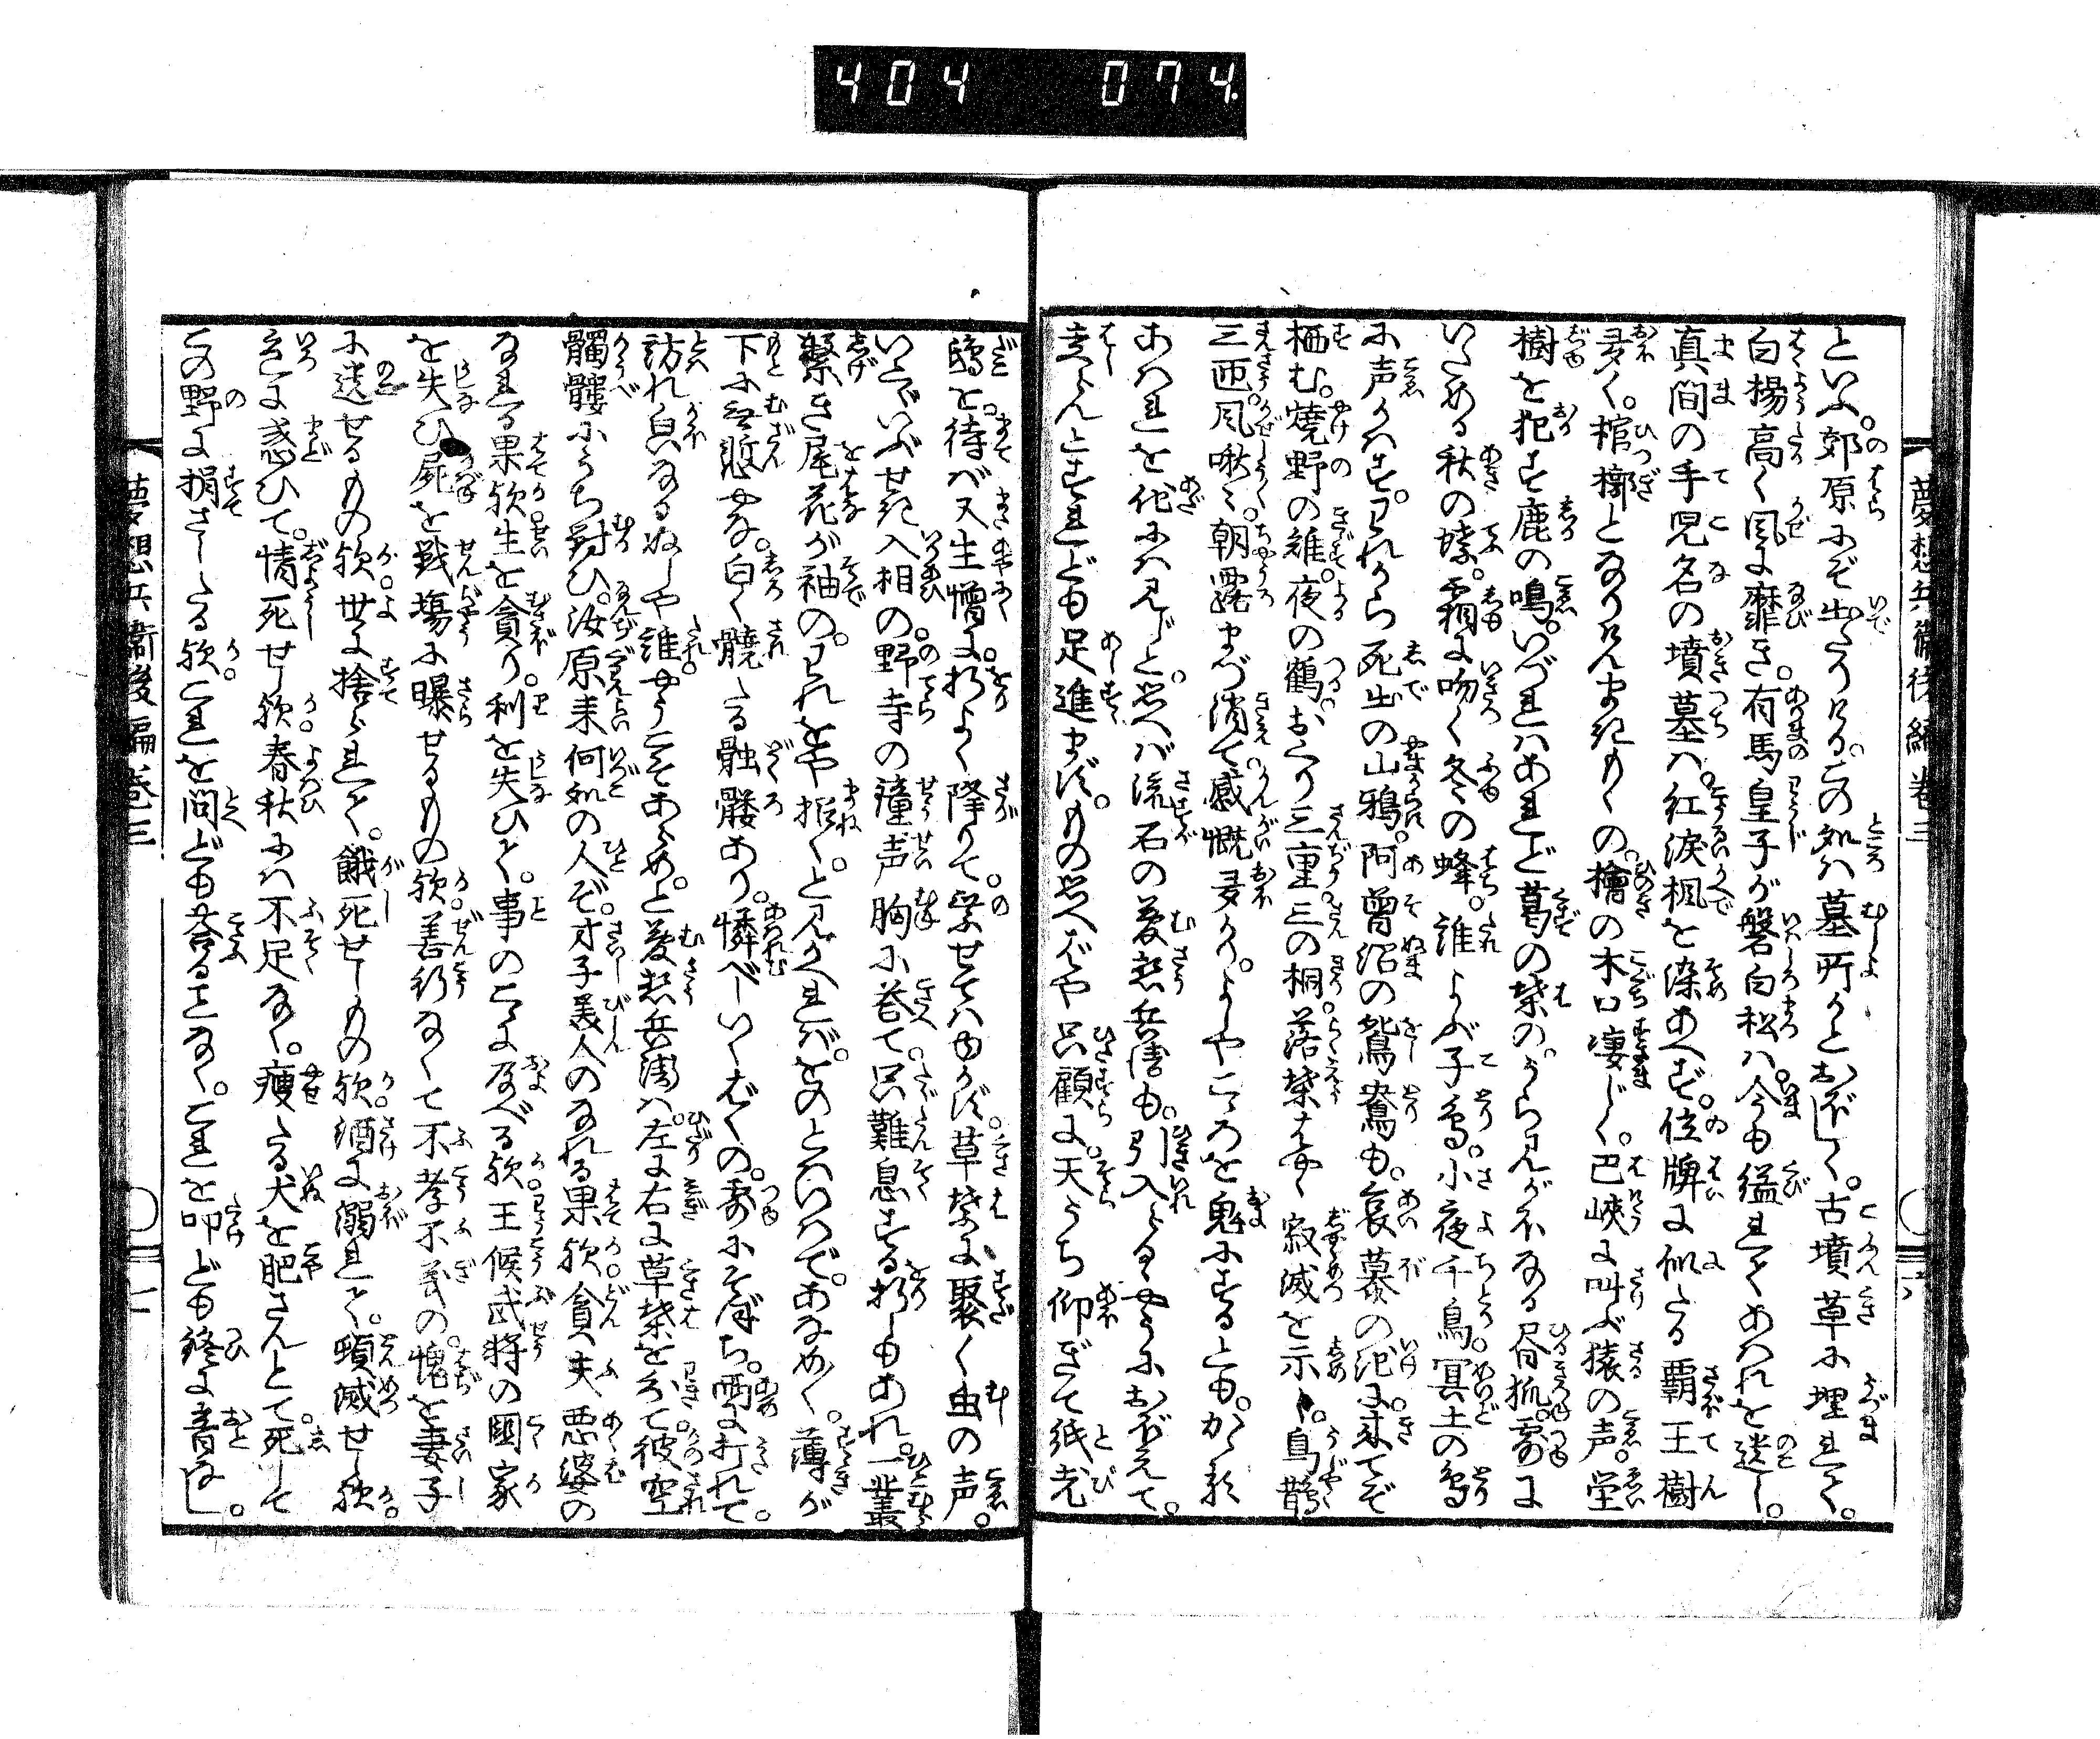 404 074
夢想兵衛後編巻三
といふ。郊原にぞ出たりける。この処は墓所かとおぼしく。古墳草に埋れて。
白楊高く風に靡き。有馬皇子が磐白松は。今も縊れてあはれを遺し。
真間の手児名の墳墓は。紅涙楓を染あへず。位牌に似たる覇王樹
多く。棺槨となりけんまきもくの。檜の木口凄じく。巴峡に叫ぶ猿の声。塋
樹を犯す鹿の鳴。いづれはあれど葛の葉の。うらみがほなる昼狐。霜に
いためる秋の蝶。霜に吻く冬の蜂。誰よぶ子鳥。小夜千鳥。冥土の鳥
の声かはす。われから死出の山鴉。阿曽沼の鴛鴦も。哀慕の池に来てぞ
栖む。焼野の雉。夜の鶴。おくり三重三の桐。落葉はやく寂滅を示し。烏鵲
三匝。風啾々。朝露まづ消て感慨多かり。よしやこゝろを鬼にするとも。かゝる
あはれを他には見じと。思へば流石の夢想兵衛も。引入らるゝやうにおぼえて。
走らんとすれども足進まず。もの思へばや只顧に。天うち仰ぎて鴟尭
鴟を。待ば又生憎に。折よく降りて乗せてはゆかず。草葉に聚く虫の声。
いとゞいぶせき入相の。野寺の鐘声胸に答て。只難息する折しもあれ。一叢
繁き尾花が袖の。われをや招く。と見かへれば。をのとはいはで。あなめ〳〵。薄が
下に無慙やな。白く髐たる髑髏あり。憐べしいくばくの。霜にそぼち。雨に打れて。
訪れ㒵なるぬしや誰。やうこそあらめ。と夢想兵衛は。左に右に草葉をかき分て。彼空
髑髏にうち対ひ。汝原来何処の人ぞ。才子美人のなれる果歟。貪夫悪婆の
なれる果歟。生を貪り。利を失ひて。事のこゝに及べる歟。王侯武将の国家
を失ひ屍を戦場に曝せるもの歟。善行なくて不孝不義の。愧を妻子
に遺せるもの歟。世に捨られて。餓死せしもの歟。酒に溺れて。顛滅せし歟。
色に惑ひて。情死せし歟。春秋には不足なく。痩たる犬を肥さんとて。死して
この野に捐さしたる歟。これを問ども答ることなく。これを叩ども終に音なし。
夢想兵衛後編巻三